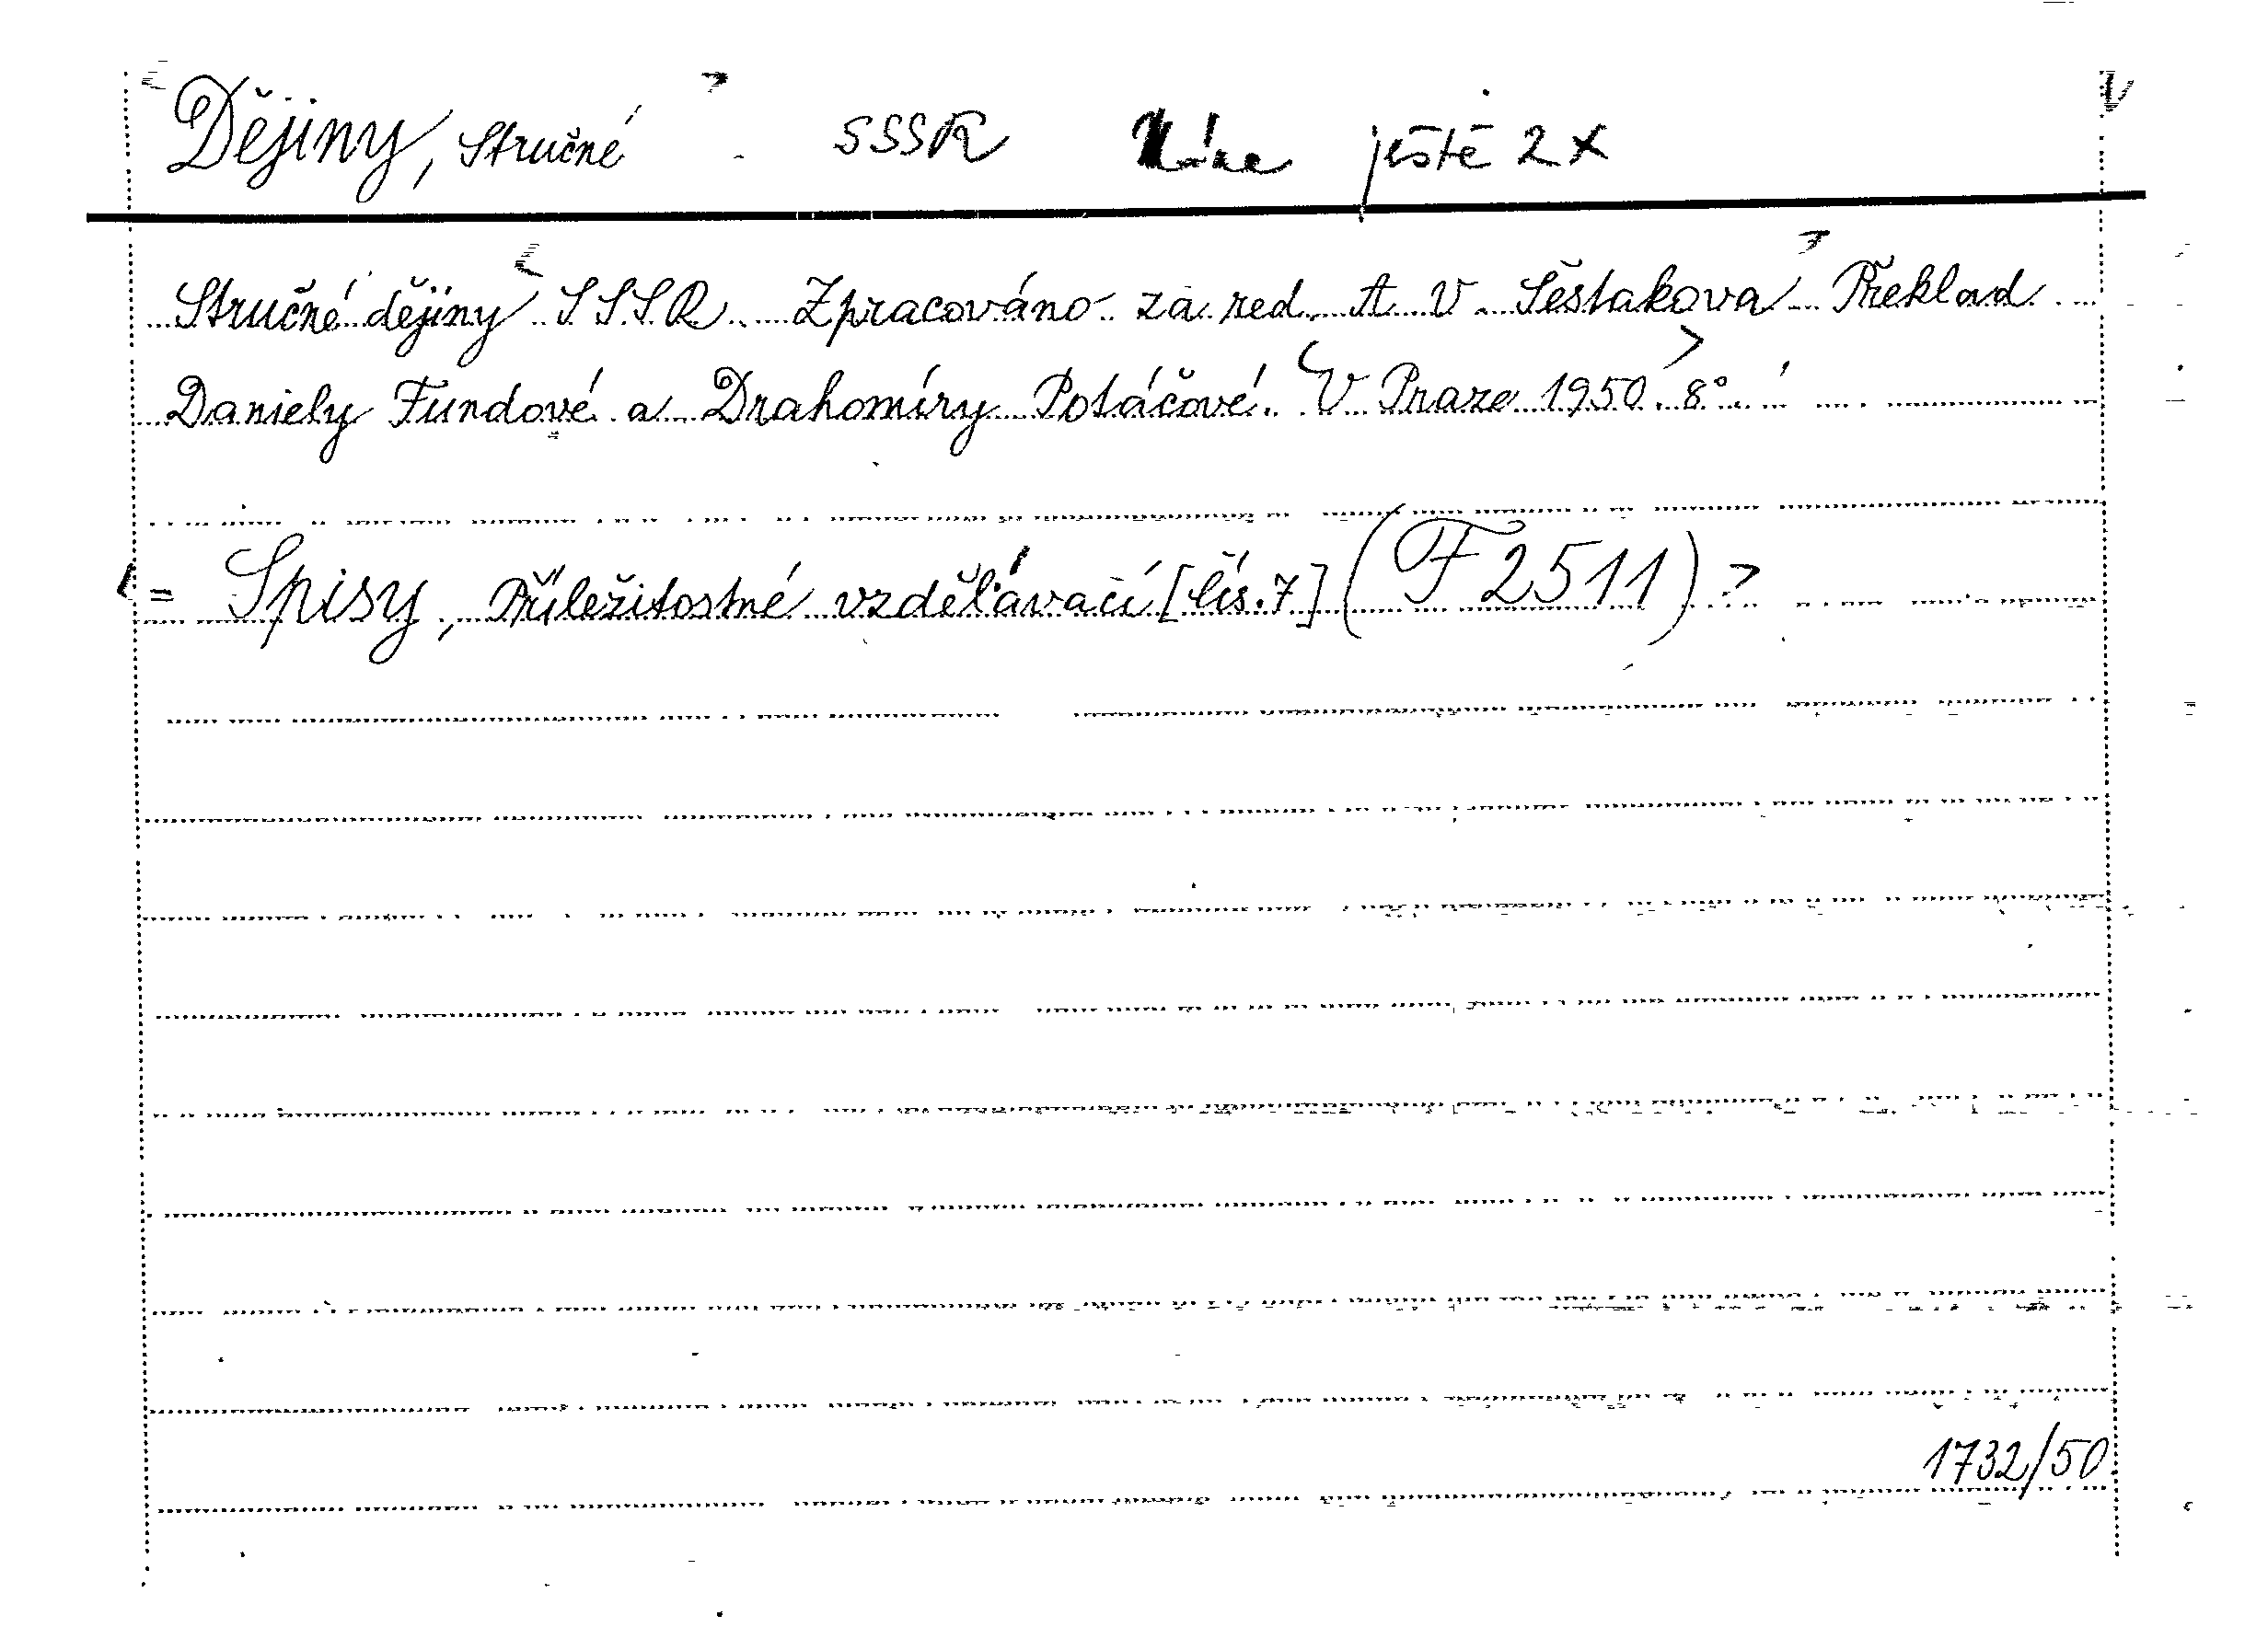 Dějiny, Stručné SSSR ještě 2x
Stručné dějiny SSSR. Zpracováno za red. A. V. Šestakova Překlad
Daniely Fundové a Drahomíry Potáčové. V Praze 1950. 8°.
= Spisy, Příležitostné vzdělávací [čís. 7] (F 2511)
1732/50